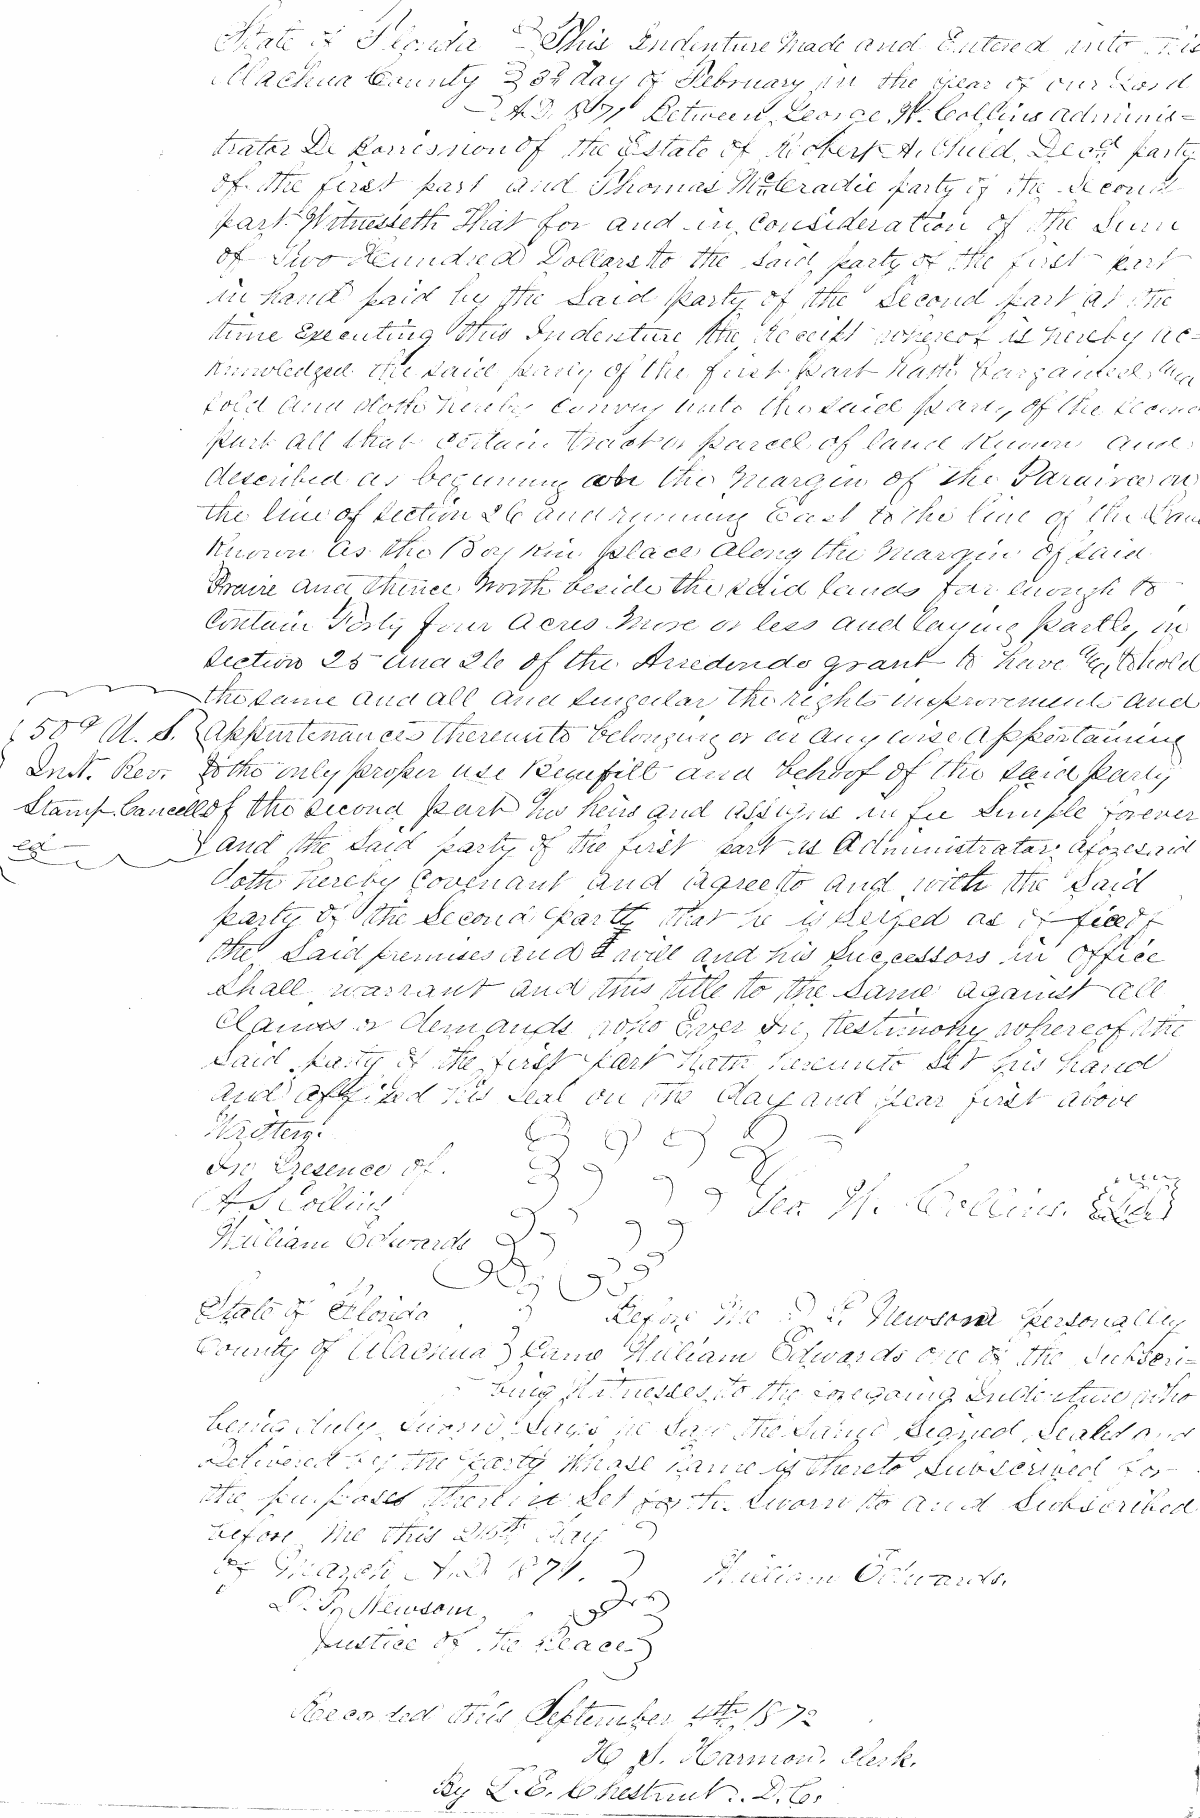 State of Florida This Indenture Made and Entered into this
Alachua County 3d day of February in the year of our Lord
A.D. 1871 Between George W. Collins adminis=
trator De Bonis non of the Estate of Robert A. Child, Decd party
of the first part and Thomas McCradie party of the Second
part Witnesseth That for and in consideration of the Sum
of Two Hundred Dollars to the Said party of the first part
in hand paid by the Said Party of the Second part at the
time Executing this Indenture the Receipt whereof is hereby ac=
knowledged the said party of the first Part hath bargained and
sold and doth hereby convey unto the said party of the second
part all that certain tract or parcel of land Known and
described as beginning on the Margin of the Parairea on
the line of Section 26 and running East to the line of the Land
Known as the Boykin place along the Margin of said
Prairie and thence North beside the said lands far enough to
Contain Forty four Acres More or less and laying partly in
Section 25 and 26 of the Arredondo grant to have and to hold
the same and all and singular the rights improvements and
appurtenances thereunto belonging or in any wise appertaining
to the only proper use Benefitt and behoof of the said party
of the second part his heirs and assigns in fee Simple forever
and the said party of the first part as Administrator aforesaid
doth hereby covenant and agree to and with the Said
party of the Second part that he is Seized as of fee of
the Said premises and I will and his Successors in office
Shall warrant and this title to the Same against all
Claims or demands who Ever In testimony whereof the
Said party of the first part hath hereunto set his hand
and affixed his seal on the day and year first above
Written.
50c U. S.
Int. Rev.
Stamp Cancell
ed
In Presence of.
A S Collins
William Edwards
Geo. W. Collins. Seal
State of Florida Before Me D. P. Newsom personally
County of Alachua Came William Edwards one of the Subscri=
bing Witnesses to the foregoing Indenture who
being duly sworn Says he saw the Same Signed Sealed and
Delivered by the Party whose name is thereto Subscribed for
the purposes therein Set forth. Sworn to and Subscribed
before me this 24th day
of March A.D. 1871. William Edwards.
D. P. Newsom,
Justice of the Peace
Recorded this September 4th 1872
H. S. Harmon. Clerk.
By L. E. Chestnut. D. C.